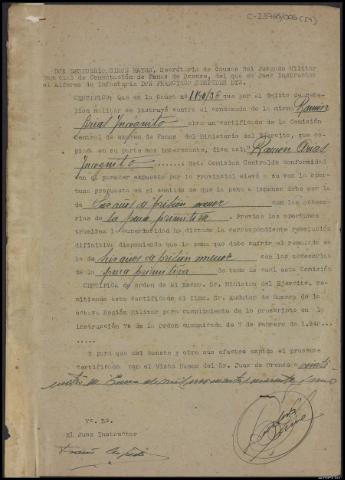 C-15798/005 (14)
DON DESIDERIO CINOS MATAS, Secretario de Causas del Juzgado Militar
Especial de Conmutación de Penas de Orense, del que es Juez Instructor
el Alférez de Infantería DON FRANCISCO
CERTIFICO: Que en la Causa nº que por el delito de rebe-
lión militar se instruyó contra el condenado en la misma Ramón
Arias Incógnito obra un certificado de la Comisión
Central de examen de Penas del Ministerio del Ejército, que co-
piado en su parte más interesante, dice así: "Ramón Arias
Incógnito Esta Comisión Central de conformidad
con el parecer expuesto por la Provincial elevó a su vez la opor-
tuna propuesta en el sentido de que la pena a imponer debe ser la
de Seis años de prisión menor con las acceso-
rias de la pena primitiva. Previos los oportunos
trámites la Superioridad ha dictado la correspondiente resolución
difinitiva disponiendo que la pena que debe sufrir el repetido es
la de seis años de prisión menor con las accesorias
de la pena primitiva de todo lo cual esta Comisión
CERTIFICA de orden de mi Excmo. Sr. Ministro del Ejército, re-
mitiendo este certificado al Ilmo. Sr. Auditor de Guerra de la
octava Región Militar para cumplimiento de lo prevenido en la
instrucción 7ª de la Orden comunicada de 7 de Febrero de 1.940
Y para que así conste y obre sus efectos expido el presente
certificado con el Visto Bueno del Sr. Juez de Orense a veinti
de Enero de mil novecientos cuarenta y uno
Vº. Bº.
El Juez Instructor